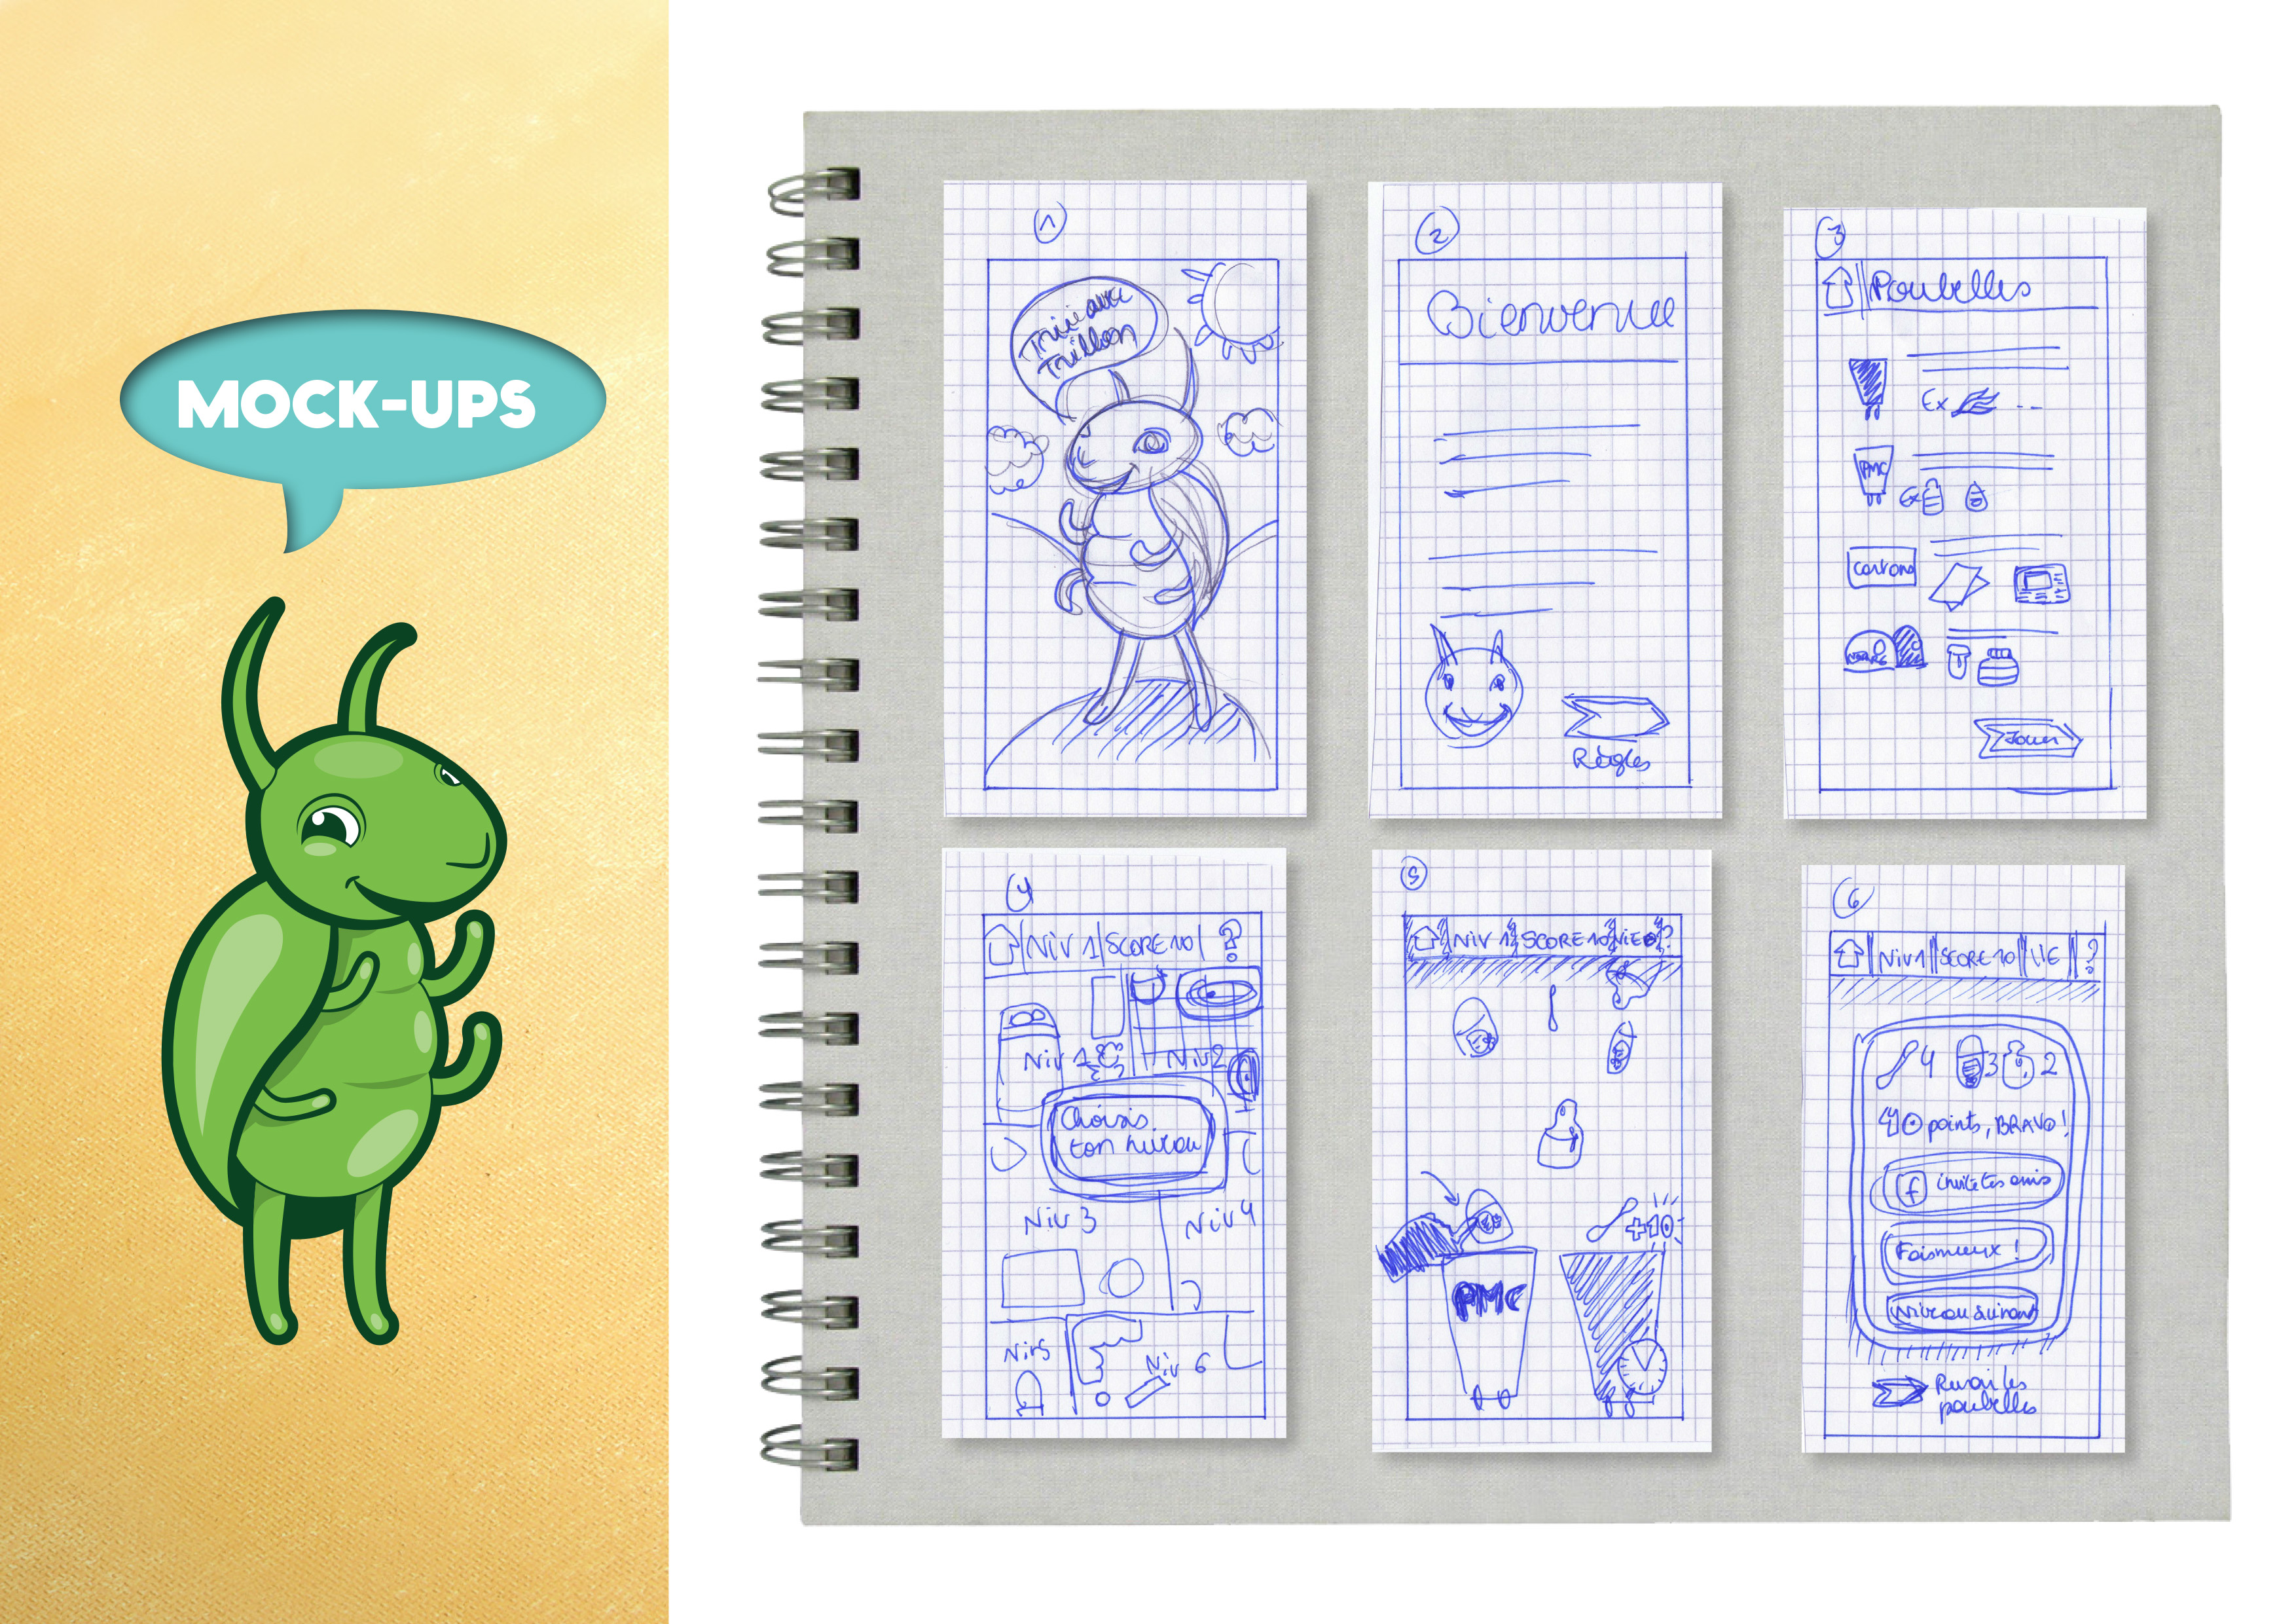 MOCK-UPS
1
Trie avec
Trillon
2
Bienvenue
Règles
3
Poubelles
Ex
PMC
Ex
Cartons
Jouer
4
NIV 1 SCORE 10 ?
Niv 1
Niv 2
Choisis
ton niveau
Niv 3
Niv 4
Niv 5
Niv 6
5
NIV 1 SCORE 10 VIE ?
+10
PMC
6
Niv 1 SCORE 10 VIE ?
4 3 2
40 points, BRAVO !
f invite tes amis
Fais mieux !
Niveau suivant
Revoir les
poubelles